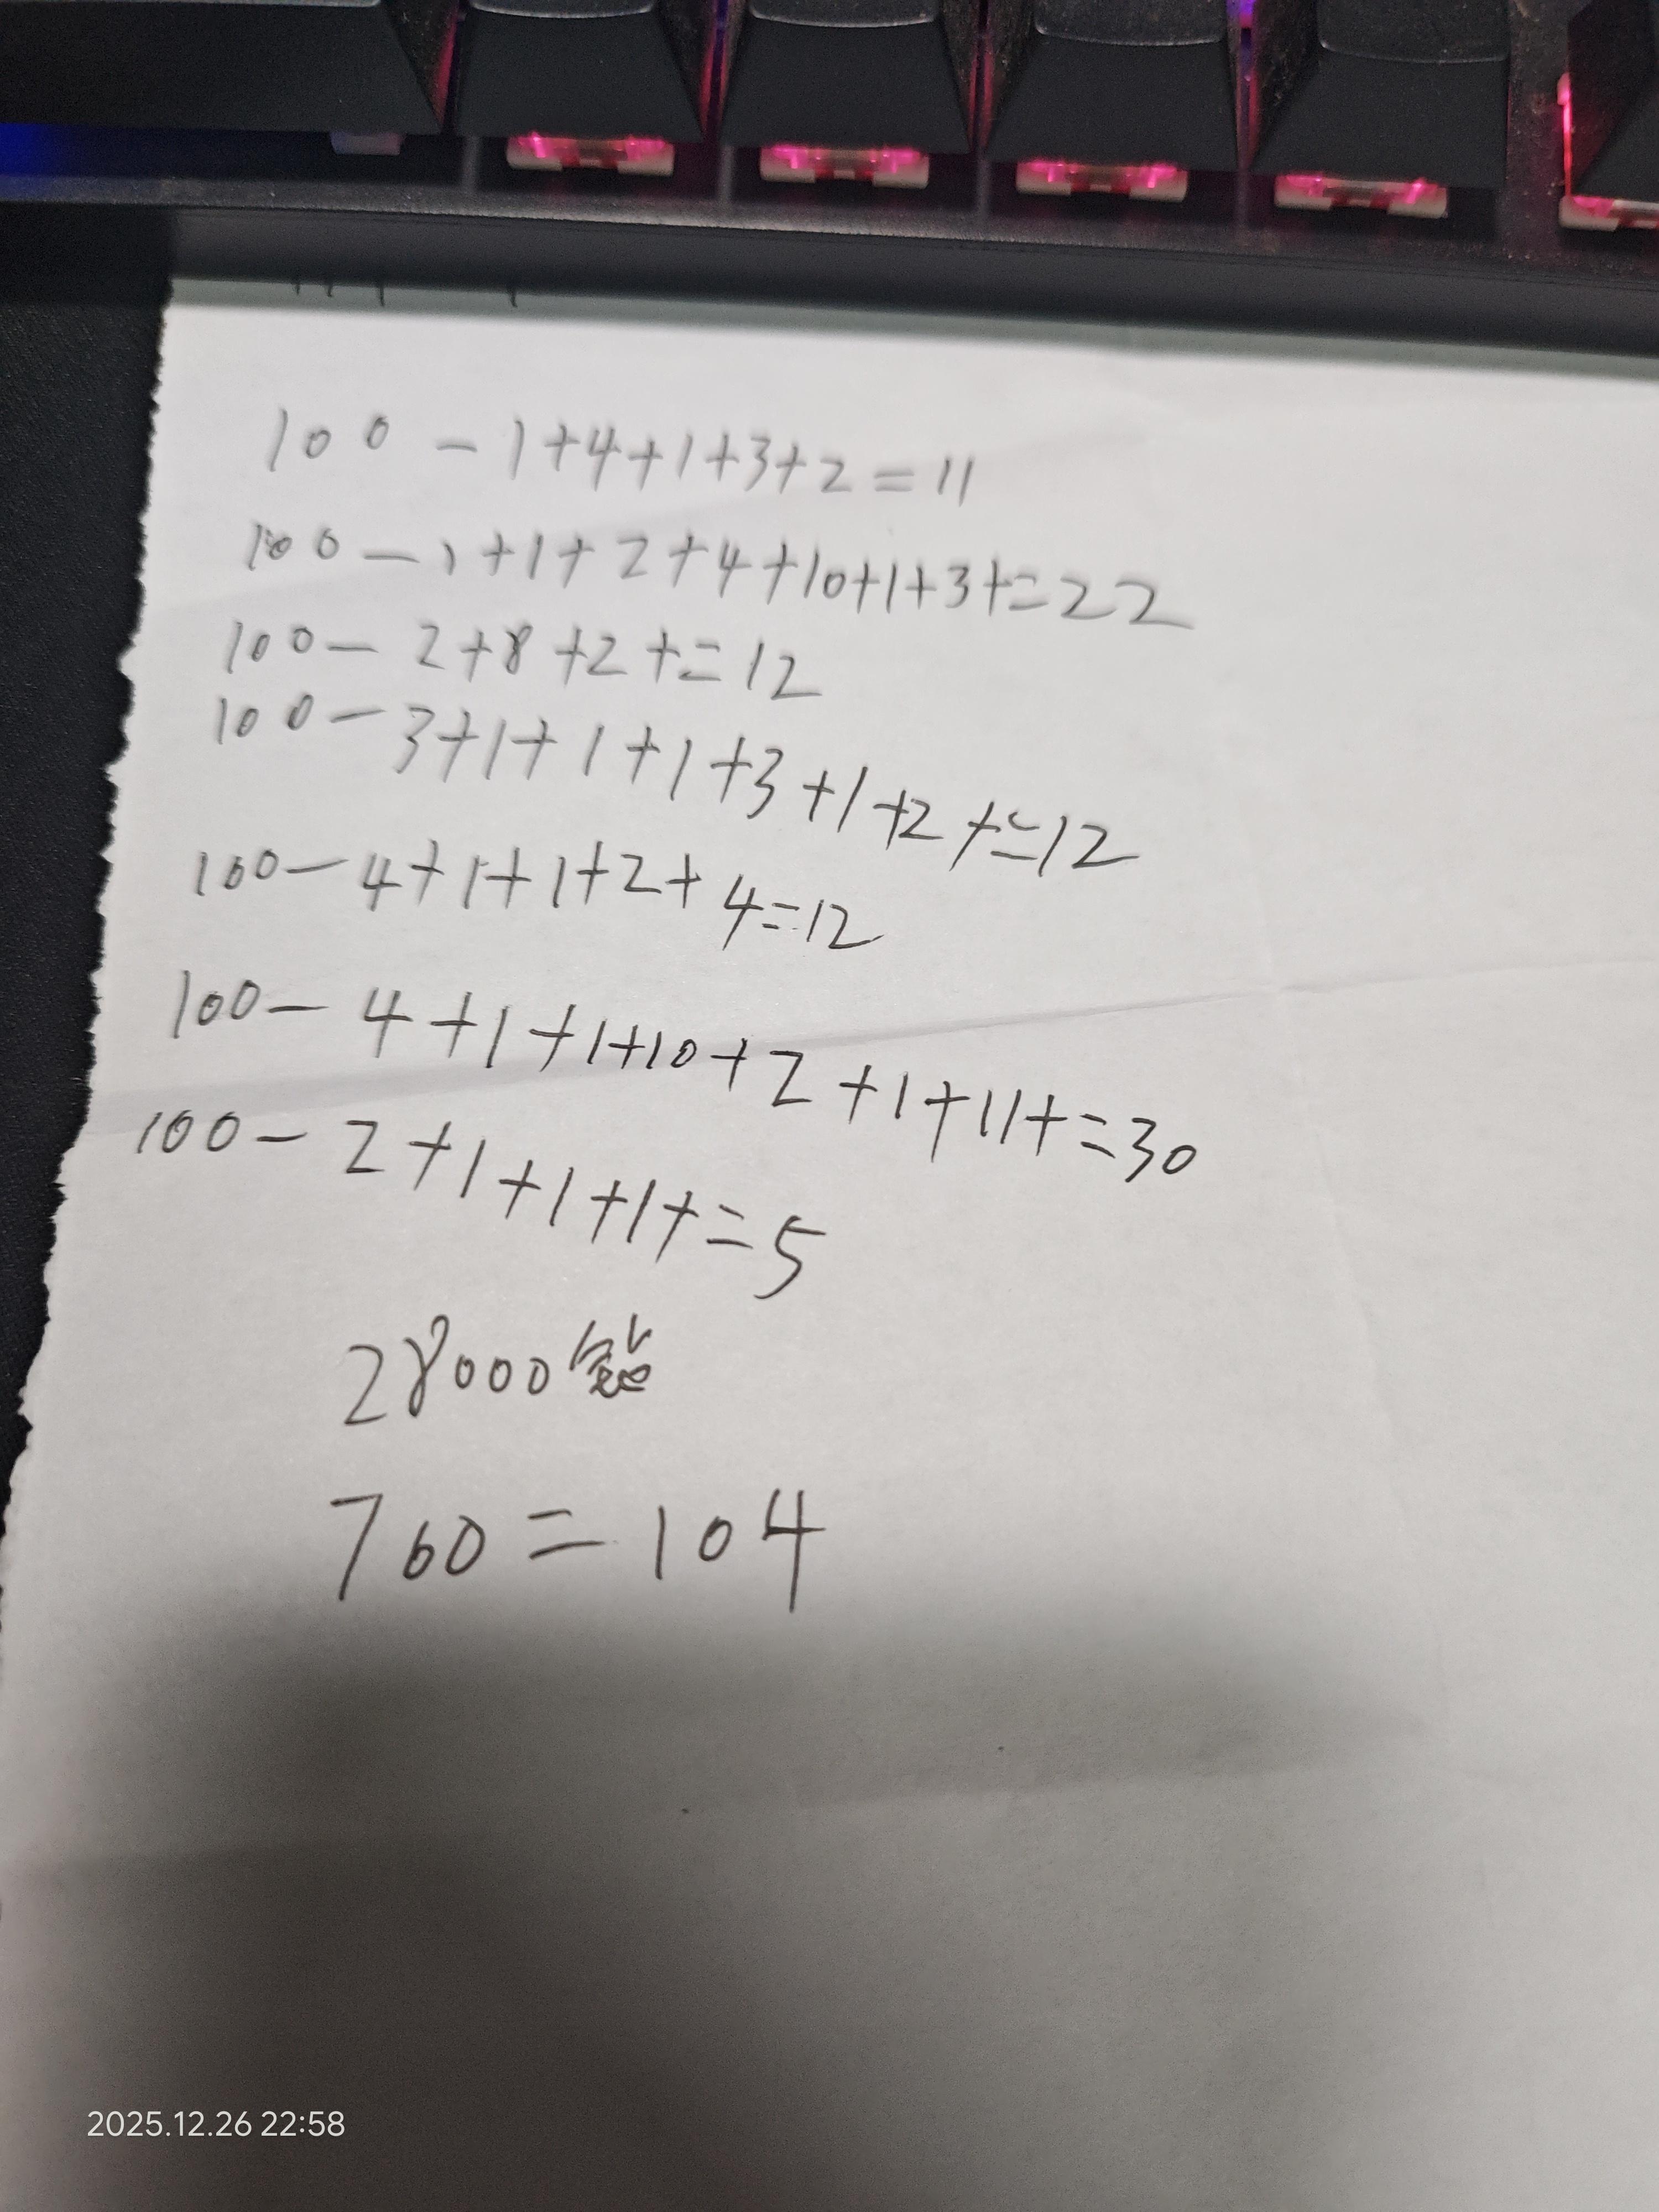 100 - 1+4+1+3+2=11
100 - 1+1+2+4+10+1+3+=22
100 - 2+8+2+=12
100 - 3+1+1+1+3+1+2+=12
100 - 4+1+1+2+4=12
100 - 4+1+1+10+2+1+11+=30
100 - 2+1+1+1+=5
28000钻
760=104
2025.12.26 22:58